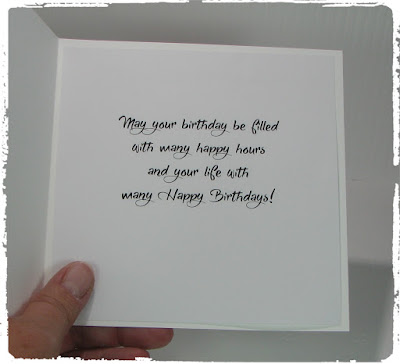 May your birthday be filled
with many happy hours
and your life with
many Happy Birthdays!